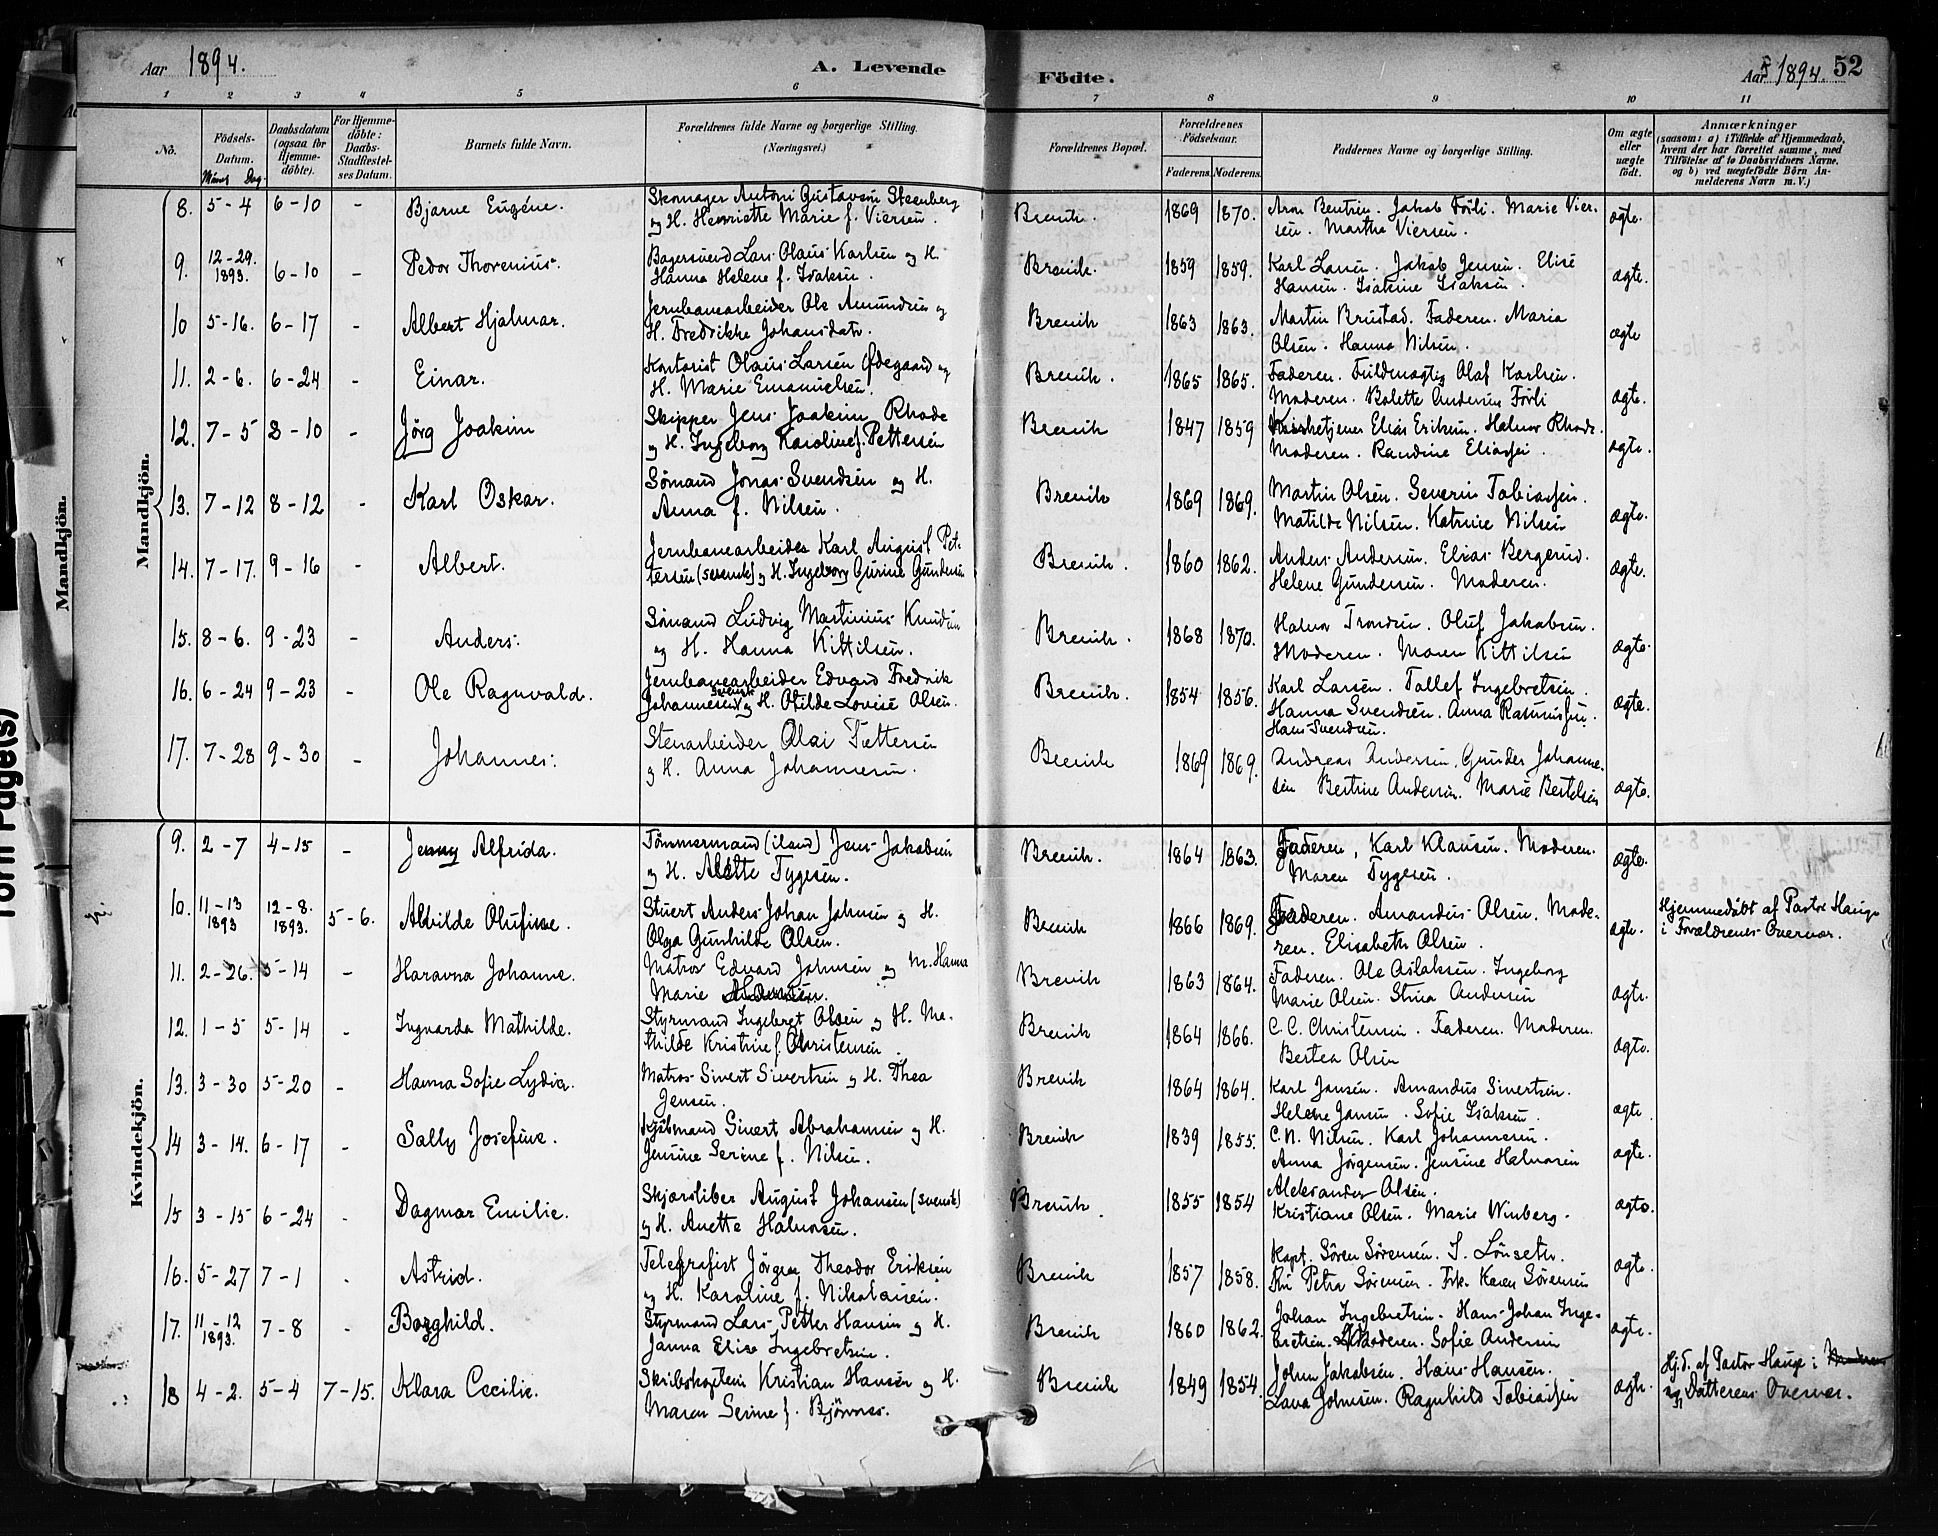 Aar 1894. A. Levende Födte. Aar 1894. 52
1 2 3 4 5 6 7 8 9 10 11
No. Födsels-Datum. Maaned Dag Daabsdatum (ogsaa for Hjemmedöbte). For Hjemmedöbte: Daabs-Stadfæstelses Datum. Barnets fulde Navn. Forældrenes fulde Navne og borgerlige Stilling. (Næringsvei.) Forældrenes Bopæl. Forældrenes Födselsaar. Faderens. Moderens. Faddernes Navne og borgerlige Stilling. Om ægte eller uægte födt. Anmærkninger (saasom: a) i Tilfælde af Hjemmedaab, hvem der har forrettet samme, med Tilföielse af to Daabsvidners Navne. og b) ved uægtefödte Börn Anmelderens Navn m. V.)
Mandkjön.
8. 5-4 6-10 - Bjarne Eugéne. Skomager Antoni Gustavsen Steenberg Brevik. 1869 1870. Aron Bentsen. Jakob Förli. Marie Vier- ægte.
og H. Henriette Marie f. Viersen. sen. Marthe Viersen.
9. 12-29. 1893. 6-10 - Peder Thorenius. Bagersvend Lars Olaus Karlsen og H. Brevik. 1859 1859. Karl Larsen. Jakob Jensen. Elise ægte.
Hanna Helene f. Isaksen. Hansen. Isakine Isaksen.
10 5-16. 6-17 - Albert Hjalmar. Jernbanearbeider Ole Amundsen og Brevik 1863 1863. Martin Brustad. Faderen. Maria ægte
H. Fredrikke Johansdatr. Olsen. Hanna Nilsen.
11. 2-6. 6-24 - Einar. Kontorist Olaus Larsen Ødegaard og Brevik. 1865 1865. Faderen. Fuldmægtig Olaf Karlsen. ægte.
H. Marie Emanuelsen. Moderen. Bolette Andersen Förli
12. 7-5 8-10 - Jörg Joakim Skipper Jens Joakim Rhode Brevik 1847 1859 Kirketjener Elias Eriksen. Halvor Rhode. ægte.
og H. Ingeborg Karoline f. Pettersen Moderen. Randine Eliassen.
13. 7-12 8-12 - Karl Oskar. Sømand Jonas Svendsen og H. Brevik 1869 1869. Martin Olsen. Severin Tobiassen. ægte.
Anna f. Nilsen. Matilde Nilsen. Katrine Nilsen
14. 7-17. 9-16 - Albert. Jernbanearbeider Karl August Pet- Brevik. 1860 1862. Anders Andersen. Elias Bergerud. ægte.
tersen (svensk) og H. Ingeborg Gurine Gundersen Helene Gundersen. Moderen.
15. 8-6. 9-23 - Anders. Sømand Ludvig Martinius Knudsen Brevik. 1868 1870. Halvor Trondsen. Oluf Jakobsen. ægte.
og H. Hanna Kittilsen. Moderen. Maren Kittilsen
16. 6-24 9-23 - Ole Ragnvald. Jernbanearbeider Edvard Fredrik Brevik. 1854 1856. Karl Larsen. Tollef Ingebretsen. ægte.
Johannesen svensk og H. Otilde Lovise Olsen. Hanna Svendsen. Anna Rasmussen.
Hans Svendsen.
17. 7-28 9-30 - Johannes. Stenarbeider Olai Tettersen Brevik 1869 1869. Andreas Andersen. Gunder Johanne- ægte.
og H. Anna Johannesen. sen Bertine Andersen. Marie Bertelsen
Kvindekjön.
9. 2-7 4-15 - Jenny Alfrida. Tömmermand (iland) Jens Jakobsen Brevik. 1864 1863. Faderen, Karl Klausen. Moderen. ægte.
og H. Alette Tygesen. Maren Tygesen.
10. 11-13 1893 12-8. 1893. 5-6. Alvilde Olufine. Stuert Anders Johan Johnsen og H. Brevik 1866 1869. Faderen. Amandus Olsen. Mode- ægte. Hjemmedöbt af Pastor Hauge
Olga Gunhilde Olsen. ren. Elisabeth Olsen. i Forældrenes Overvær.
11. 2-26. 5-14 - Haravna Johanne. Matros Edvard Johnsen og M. Hanna Brevik 1863 1864. Faderen. Ole Aslaksen. Ingeborg ægte.
Marie Marie Olsen. Stina Andersen
12. 1-5 5-14 - Ingvarda Mathilde. Styrmand Ingebret Olsen og H. Ma- Brevik 1864 1866. C. C. Christensen. Faderen. Moderen. ægte.
thilde Kristine f. Christensen. Bertea Olsen
13. 3-30 5-20 - Hanna Sofie Lydia. Matros Sivert Sivertsen og H. Thea Brevik 1864 1864. Karl Jansen. Amandus Sivertsen. ægte
Jensen. Helene Jansen. Sofie Isaksen.
14 3-14. 6-17 - Sally Josefine. Kjöbmand Sivert Abrahamsen og H. Brevik 1839 1855. C. N. Nilsen. Karl Johannesen. ægte.
Jensine Serine f. Nilsen. Anna Jörgensen. Jensine Halvorsen
15 3-15 6-24 - Dagmar Emilie. Skjærsliber August Johansen (svensk) Brevik. 1855 1854 Aleksander Olsen. ægte.
og H. Anette Halvorsen. Kristiane Olsen. Marie Winberg.
16. 5-27 7-1 - Astrid. Telegrafist Jörgen Theodor Eriksen Brevik 1857 1858. Kapt. Sören Sörensen. S. Lönseth. ægte.
og H. Karoline f. Nikolaisen. Fru Petra Sörensen. Frk. Karen Sörensen
17. 11-12 1893. 7-8 - Borghild. Styrmand Lars Petter Hansen og H. Brevik 1860 1862. Johan Ingebretsen. Hans Johan Inge- ægte.
Janna Elise Ingebretsen. bretsen. Moderen. Sofie Andersen
18 4-2. 5-4 7-15. Klara Cecilie. Skibskaptein Kristian Hansen og H. Brevik 1849 1854. John Jakobsen. Hans Hansen. ægte. Hj.d. af Pastor Hauge i Moderens
Maren Serine f. Björnnes. Lava Johnsen. Ragnhild Tobiassen og Datterens Overvær.
Mandkjön.
Torn Page(s)